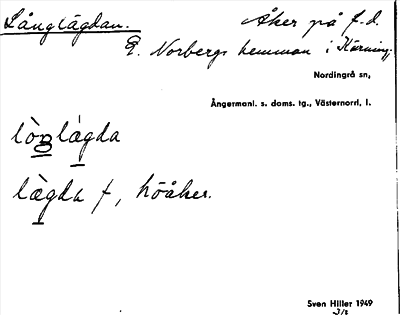 Långlägdan. Åker på f.d.
E. Norbergs hemman i Härning,
Nordingrå sn,
Ångermanl. s. doms. tg., Västernorrl, l.
lò̱ŋlàgda
làgda f, höåker.
Sven Hiller 1949